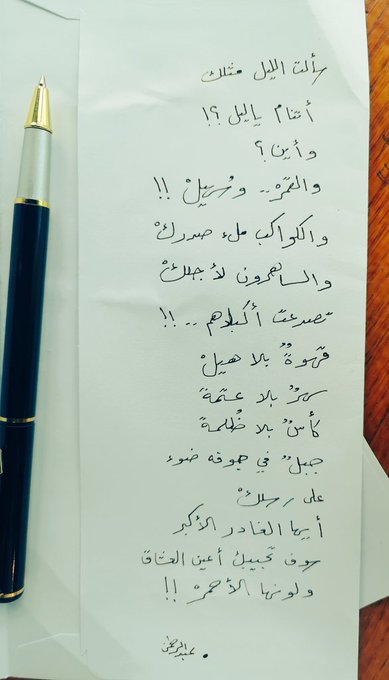 سألت الليل مثلك
أتنام ياليل ؟!
وأين ؟
والقمرْ .. وسُهيلْ !!
والكواكب ملء صدركْ
والساهرون لأجلكْ
تصدعت أكبادهم .. !!
قهوةٌ بلا هيلْ
سهرٌ بلا عتمة
كأسٌ بلا ظُلمة
جبلٌ في جوفه ضوء
على رسلكْ
أيها الغادر الأكبر
سوف تجيبكُ أعين العشاق
ولونها الأحمرْ !!
عبدالرحمن .